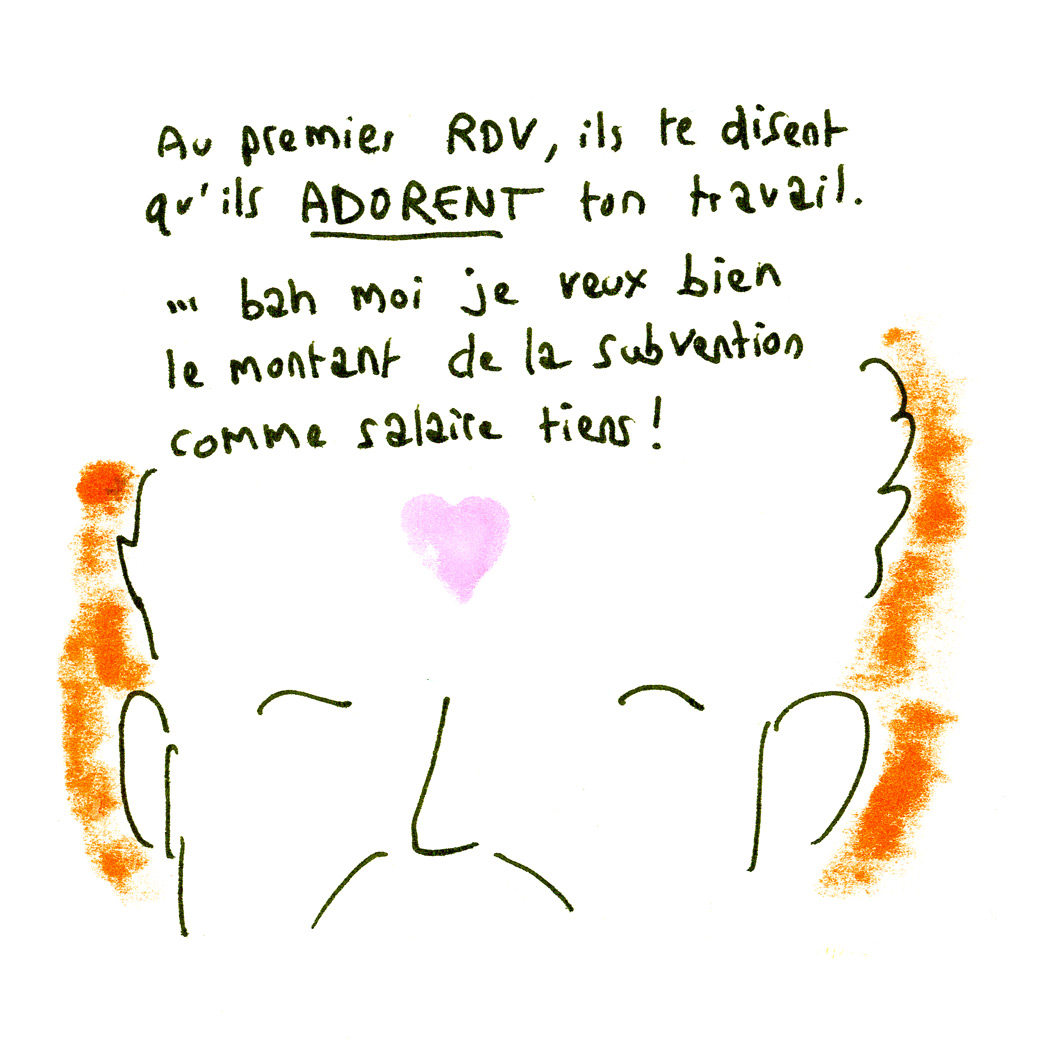 Au premier RDV, ils te disent
qu'ils ADORENT ton travail.
... bah moi je veux bien
le montant de la subvention
comme salaire tiens !